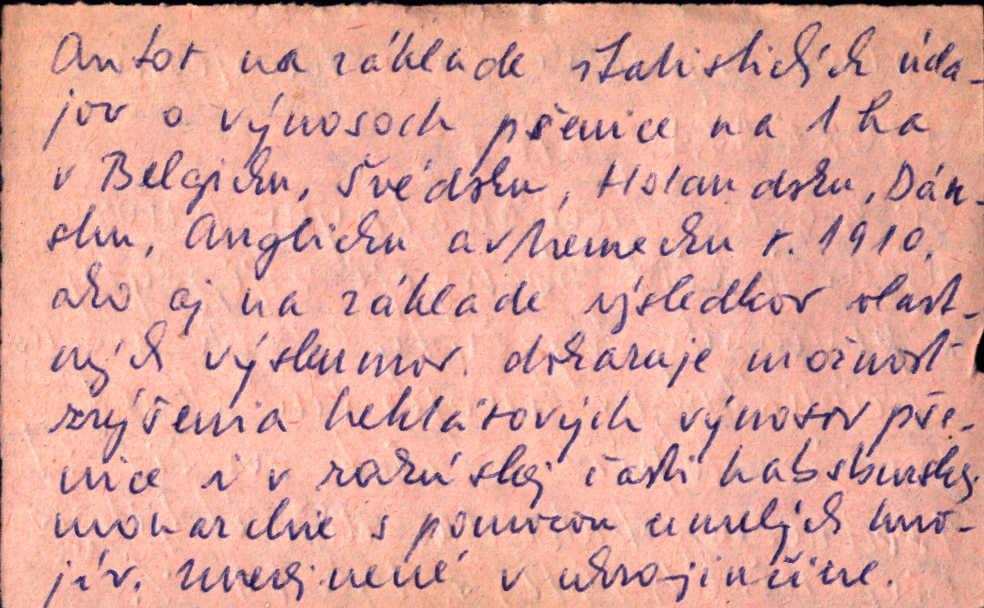 Autor na základe štatistických úda-
jov o výnosoch pšenice na 1 ha
v Belgicku, Švédsku, Holandsku, Dán-
sku, Anglicku a v Nemecku r. 1910,
ako aj na základe výsledkov vlast-
ných výskumov dokazuje možnosť
zvýšenia hektárových výnosov pše-
nice i v rakúskej časti habsburskej
monarchie s pomocou umelých hno-
jív. Uverejnené v ukrajinčine.